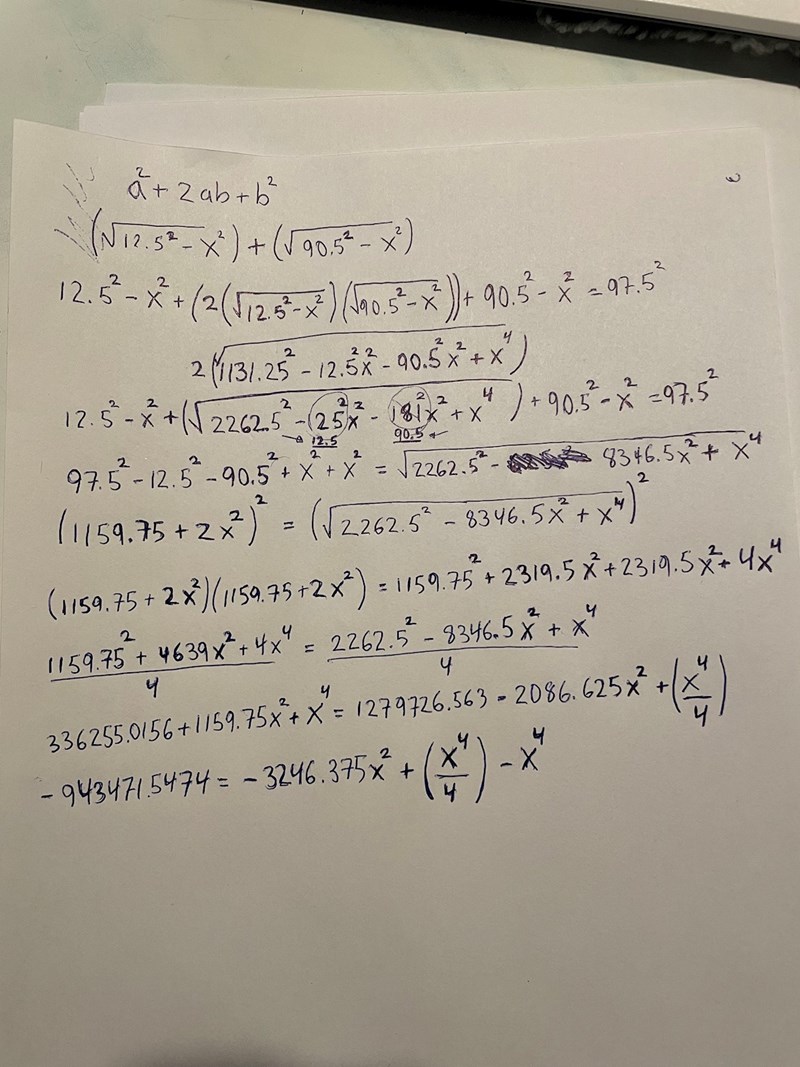 a² + 2ab + b²
(√12.5² - x²) + (√90.5² - x²)
12.5² - x² + (2(√12.5² - x²)(√90.5² - x²)) + 90.5² - x² = 97.5²
2(√1131.25² - 12.5²x² - 90.5²x² + x⁴)
12.5² - x² + (√2262.5² - (25²)x² - 181²x² + x⁴) + 90.5² - x² = 97.5²
→ 12.5 90.5 ←
97.5² - 12.5² - 90.5² + x² + x² = √2262.5² - 8346.5x² + x⁴
(1159.75 + 2x²)² = (√2262.5² - 8346.5x² + x⁴)²
(1159.75 + 2x²)(1159.75 + 2x²) = 1159.75² + 2319.5x² + 2319.5x² + 4x⁴
(1159.75² + 4639x² + 4x⁴)/4 = (2262.5² - 8346.5x² + x⁴)/4
336255.0156 + 1159.75x² + x⁴ = 1279726.563 - 2086.625x² + (x⁴/4)
- 943471.5474 = - 3246.375x² + (x⁴/4) - x⁴